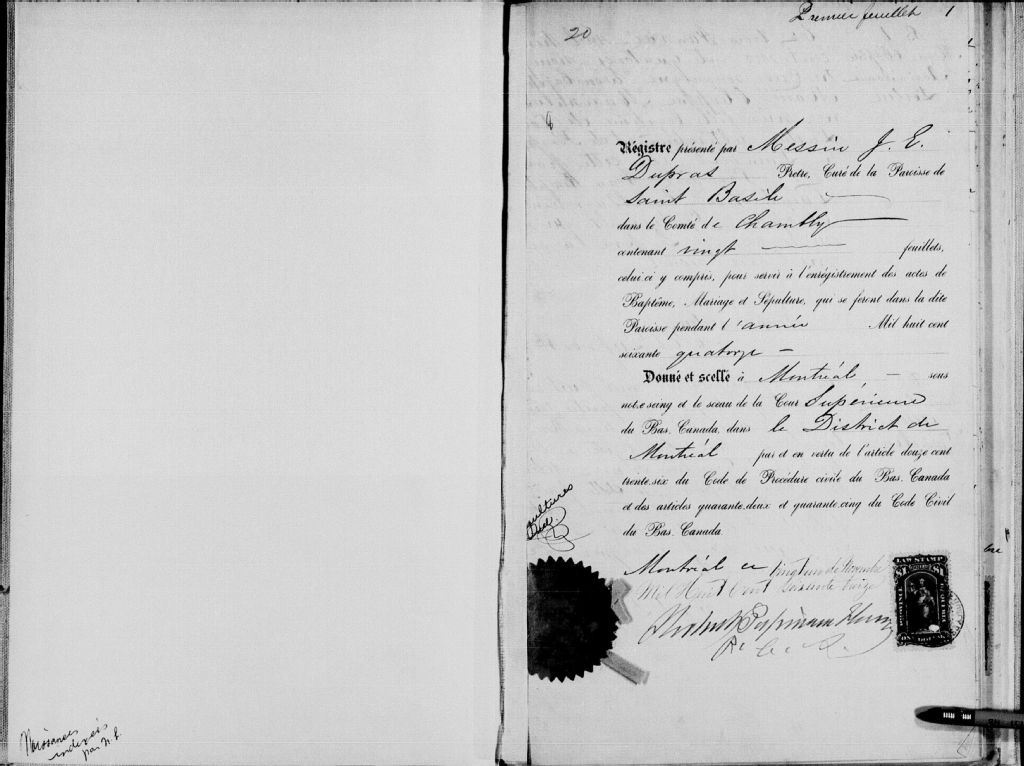 Première feuillet 1
20
8
Régistre présenté par Messire J. E.
Dupras Pretre, Curé de la Paroisse de
Saint Basile
dans le Comté de Chambly
contenant vingt feuillets,
celui.ci y compris, pour servir à l'enrégistrement des actes de
Baptême, Mariage et Sépulture, qui se feront dans la dite
Paroisse pendant l'année Mil huit cent
soixante quatorze
Donné et scellé à Montréal, sous
not.e seing et le sceau de la Cour Supérieure
du Bas. Canada, dans le District de
Montréal par et en vertu de l'article douze cent
trente.six du Code de Procédure civile du Bas. Canada
et des articles quarante.deux et quarante.cinq du Code Civil
du Bas. Canada.
Montréal ce vingt de Novembre
Mil Huit Cent Soixante Treize
LAW STAMP
$1 $1
Naissances
indexées
par N. L.